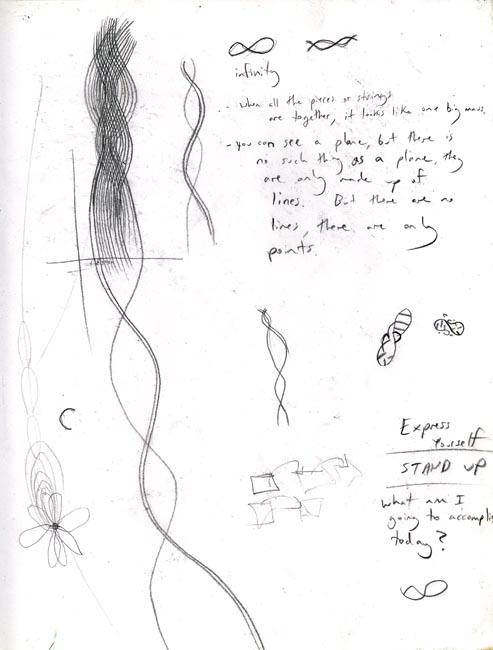 infinity
- When all the pieces or strings
are together, it looks like one big mass.
- you can see a plane, but there is
no such thing as a plane, they
are only made up of
lines. But there are no
lines, there are only
points.
Express
Yourself
STAND UP
what am I
going to accomplis
today?